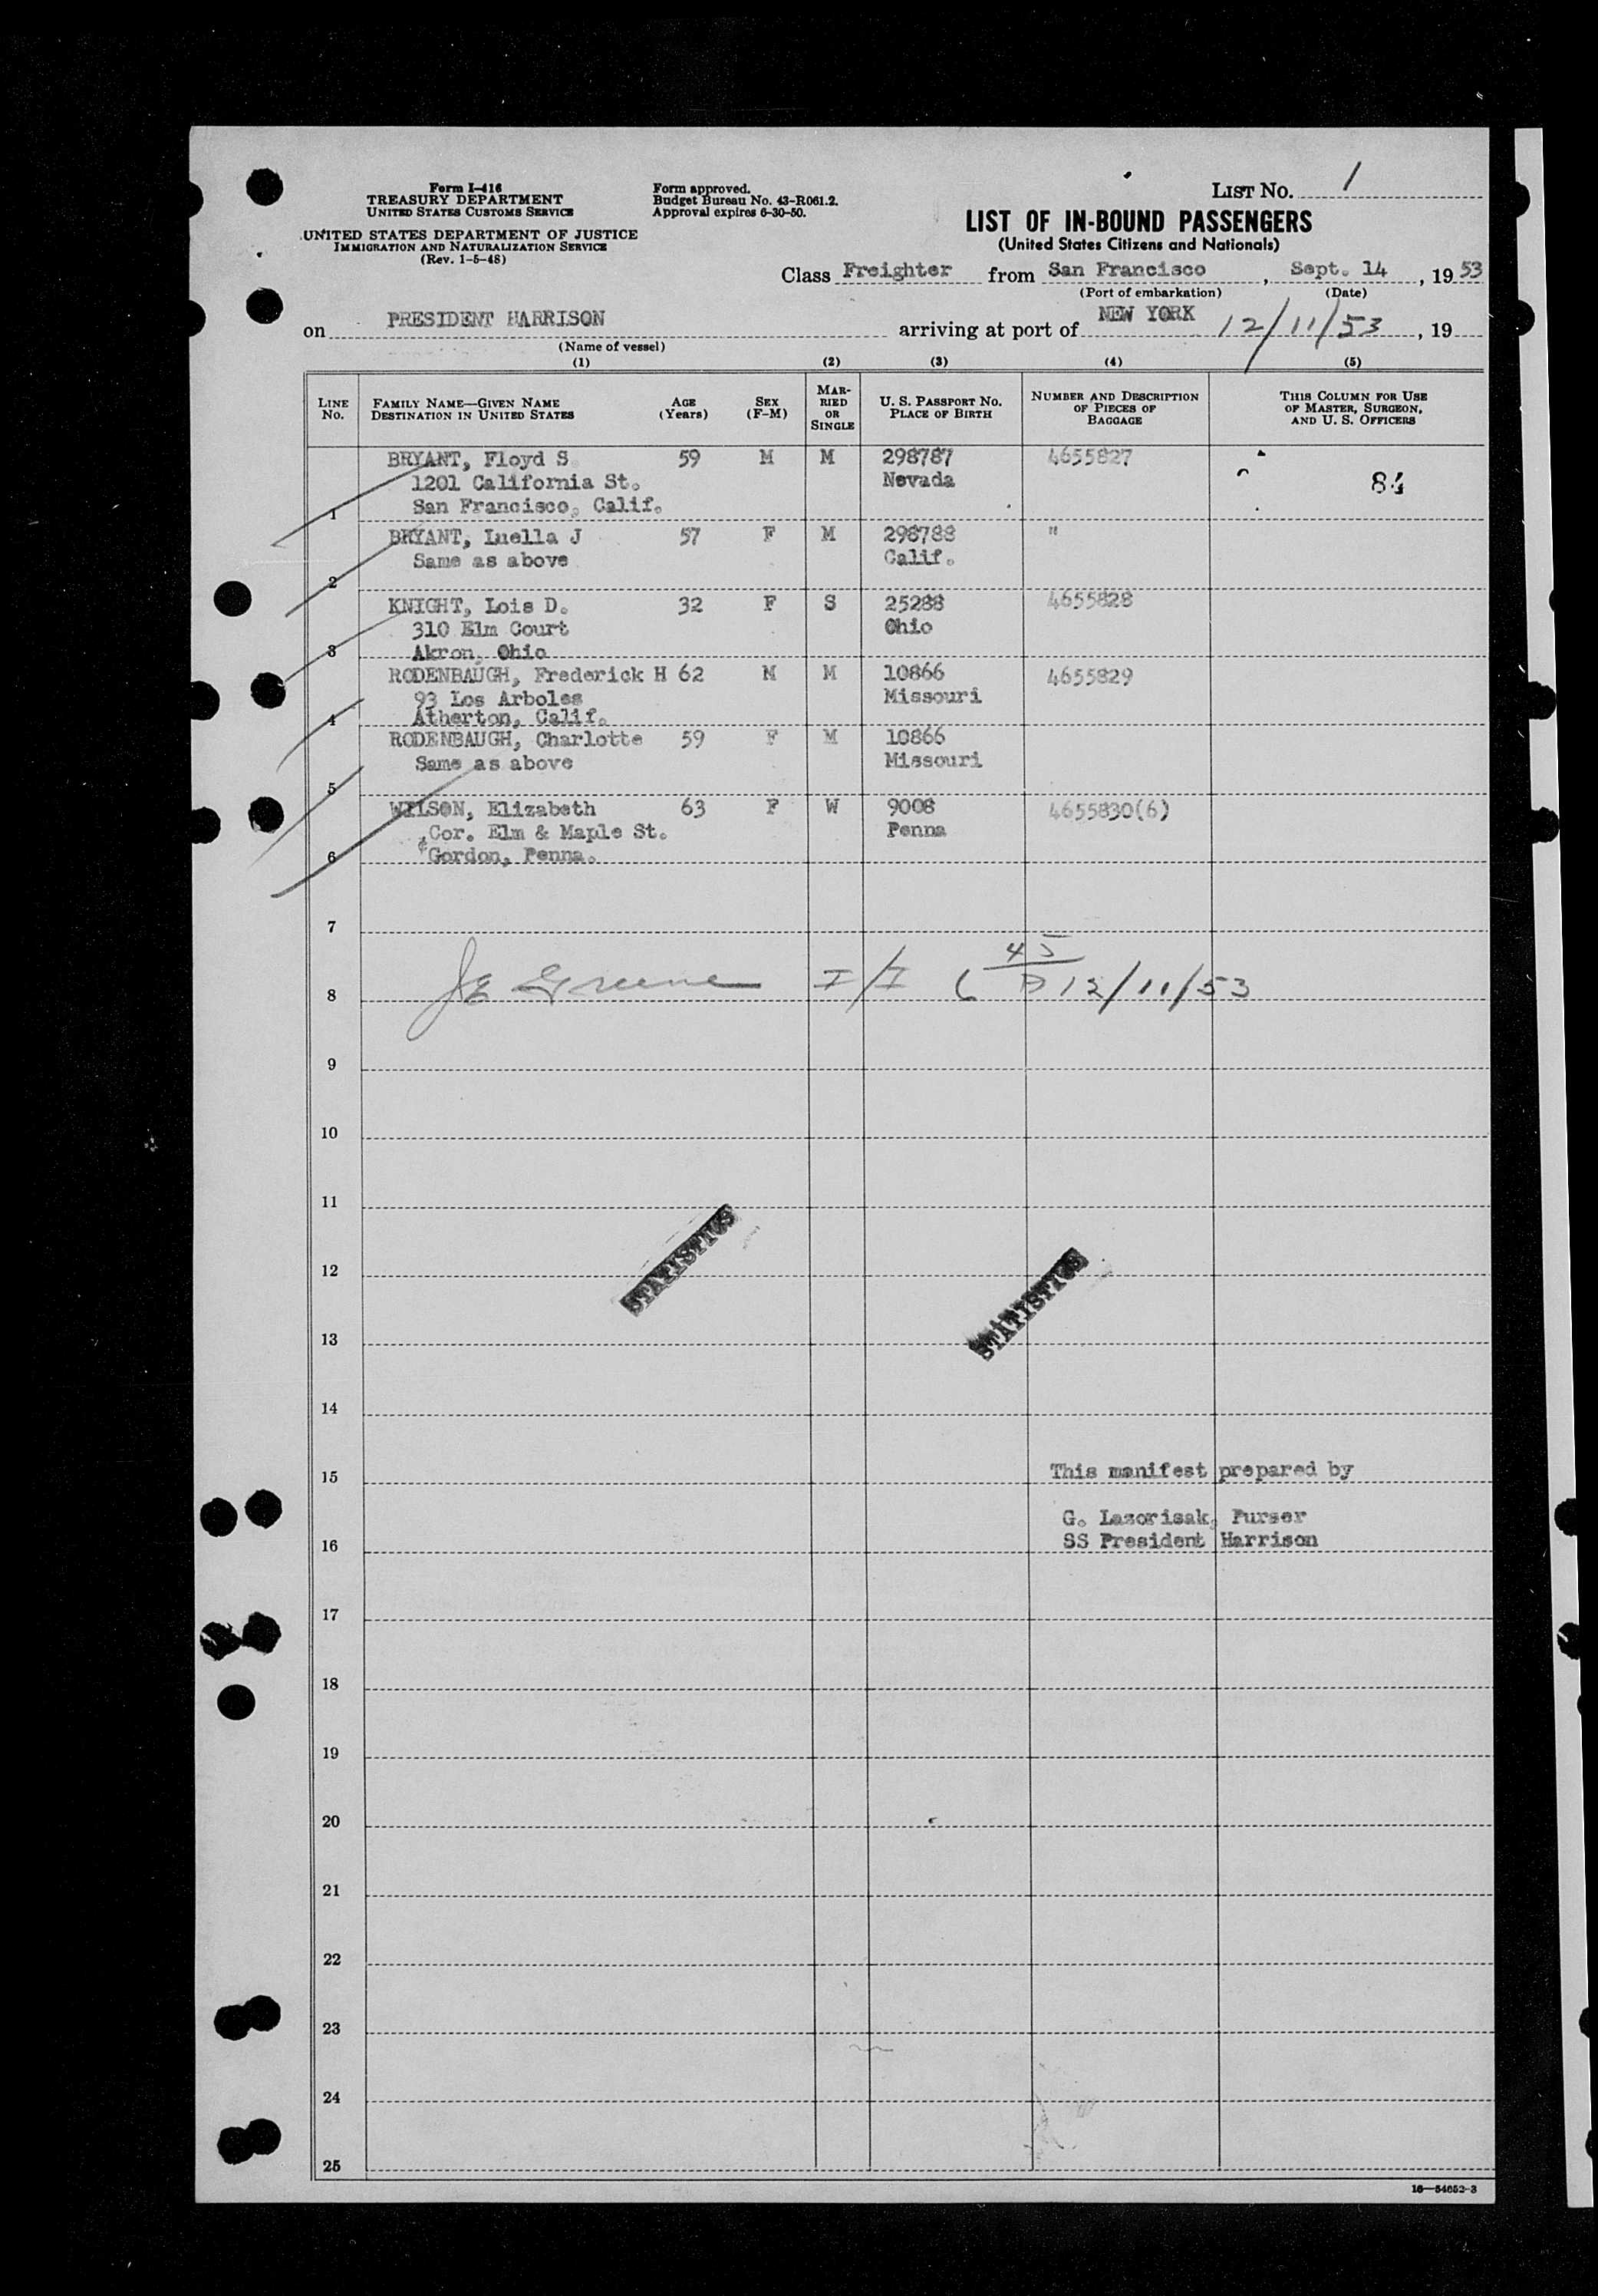 Form I-416
TREASURY DEPARTMENT
UNITED STATES CUSTOMS SERVICE
UNITED STATES DEPARTMENT OF JUSTICE
IMMIGRATION AND NATURALIZATION SERVICE
(Rev. 1-5-48)
Form approved.
Budget Bureau No. 43-R061.2.
Approval expires 6-30-50.
LIST NO. 1
LIST OF IN-BOUND PASSENGERS
(United States Citizens and Nationals)
Class Freighter from San Francisco, Sept. 14, 1953
(Port of embarkation) (Date)
on PRESIDENT HARRISON arriving at port of NEW YORK 12/11/53, 19
(Name of vessel)
(1) (2) (3) (4) (5)
LINE NO. FAMILY NAME—GIVEN NAME DESTINATION IN UNITED STATES AGE (Years) SEX (F-M) MARRIED OR SINGLE U. S. PASSPORT NO. PLACE OF BIRTH NUMBER AND DESCRIPTION OF PIECES OF BAGGAGE THIS COLUMN FOR USE OF MASTER, SURGEON, AND U. S. OFFICERS
BRYANT, Floyd S 59 M M 298787 4655827
1201 California St. Nevada 84
1 San Francisco, Calif.
BRYANT, Luella J 57 F M 298788 "
Same as above Calif.
2
KNIGHT, Lois D. 32 F S 25288 4655828
310 Elm Court Ohio
3 Akron, Ohio
RODENBAUGH, Frederick H 62 M M 10866 4655829
93 Los Arboles Missouri
4 Atherton, Calif.
RODENBAUGH, Charlotte 59 F M 10866
Same as above Missouri
5
WILSON, Elizabeth 63 F W 9008 4655830(6)
Cor. Elm & Maple St. Penna
6 Gordon, Penna.
7
8 JE Greene I/I 6 45 12/11/53
9
10
11
STATISTICS
12
STATISTICS
13
14
15 This manifest prepared by
G. Lazorisak, Purser
16 SS President Harrison
17
18
19
20
21
22
23
24
25
16—54652-3